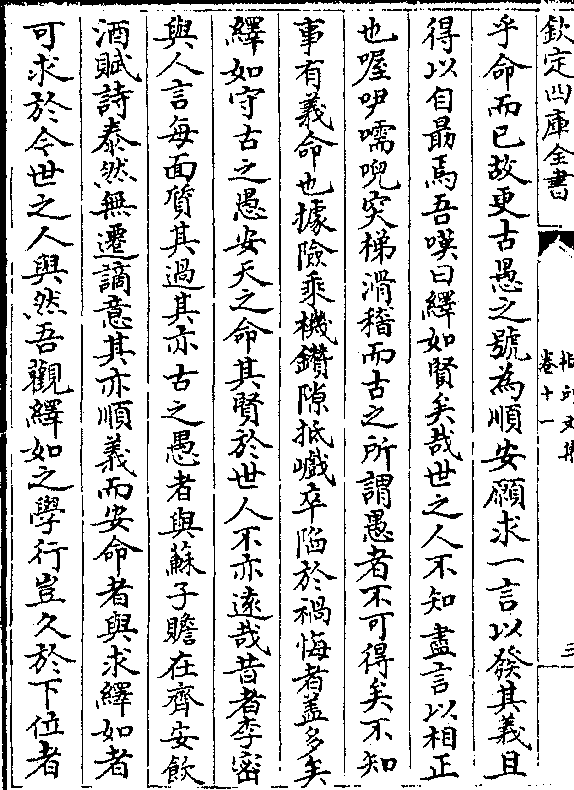 欽定四庫全書
卷十一
三
乎命而已故更古愚之號為順安願求一言以發其義且
得以自勗焉吾嘆曰繹如賢矣哉世之人不知盡言以相正
也喔吚嚅唲突梯滑稽而古之所謂愚者不可得矣不知
事有義命也據險乘機鑽隙抵巇卒陷於禍悔者盖多矣
繹如守古之愚安天之命其賢於世人不亦遠哉昔者李密
與人言每面質其過其亦古之愚者與蘇子瞻在齊安飲
酒賦詩泰然無遷謫意其亦順義而安命者與求繹如者
可求於今世之人與然吾觀繹如之學行豈久於下位者